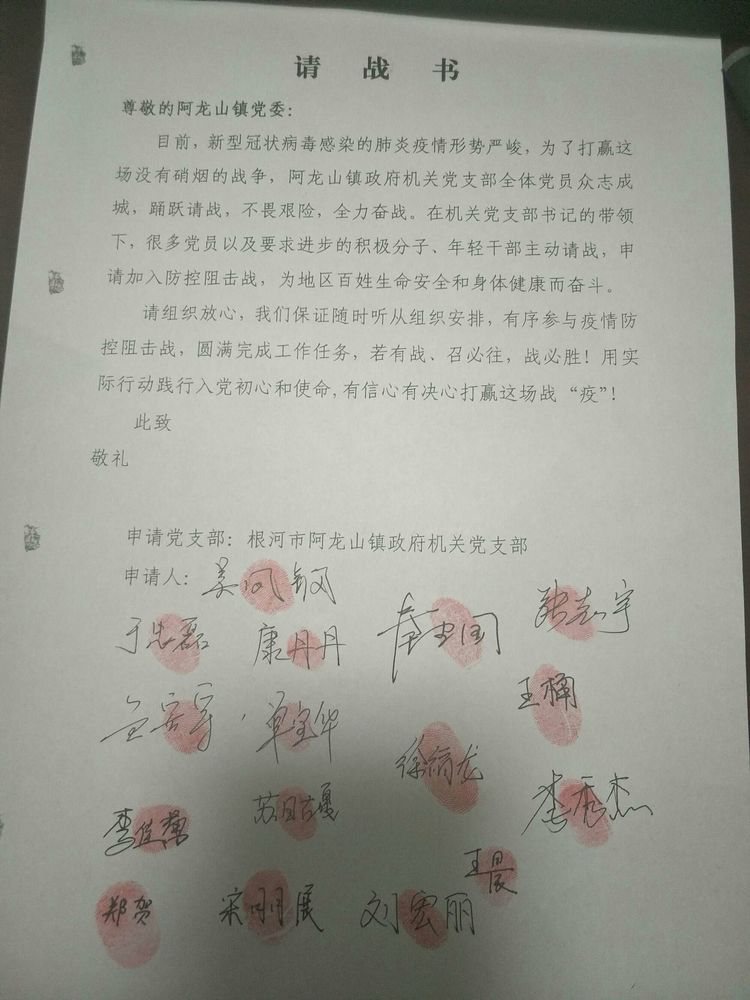 请战书
尊敬的阿龙山镇党委：
目前，新型冠状病毒感染的肺炎疫情形势严峻，为了打赢这
场没有硝烟的战争，阿龙山镇政府机关党支部全体党员众志成
城，踊跃请战，不畏艰险，全力奋战。在机关党支部书记的带领
下，很多党员以及要求进步的积极分子、年轻干部主动请战，申
请加入防控阻击战，为地区百姓生命安全和身体健康而奋斗。
请组织放心，我们保证随时听从组织安排，有序参与疫情防
控阻击战，圆满完成工作任务，若有战、召必往，战必胜！用实
际行动践行入党初心和使命,有信心有决心打赢这场战“疫”！
此致
敬礼
申请党支部：根河市阿龙山镇政府机关党支部
申请人：
于忠磊 康丹丹 张志宇
单宝华 王楠
苏日嘎 李秀杰
王晨
郑贺 宋明展 刘宏丽